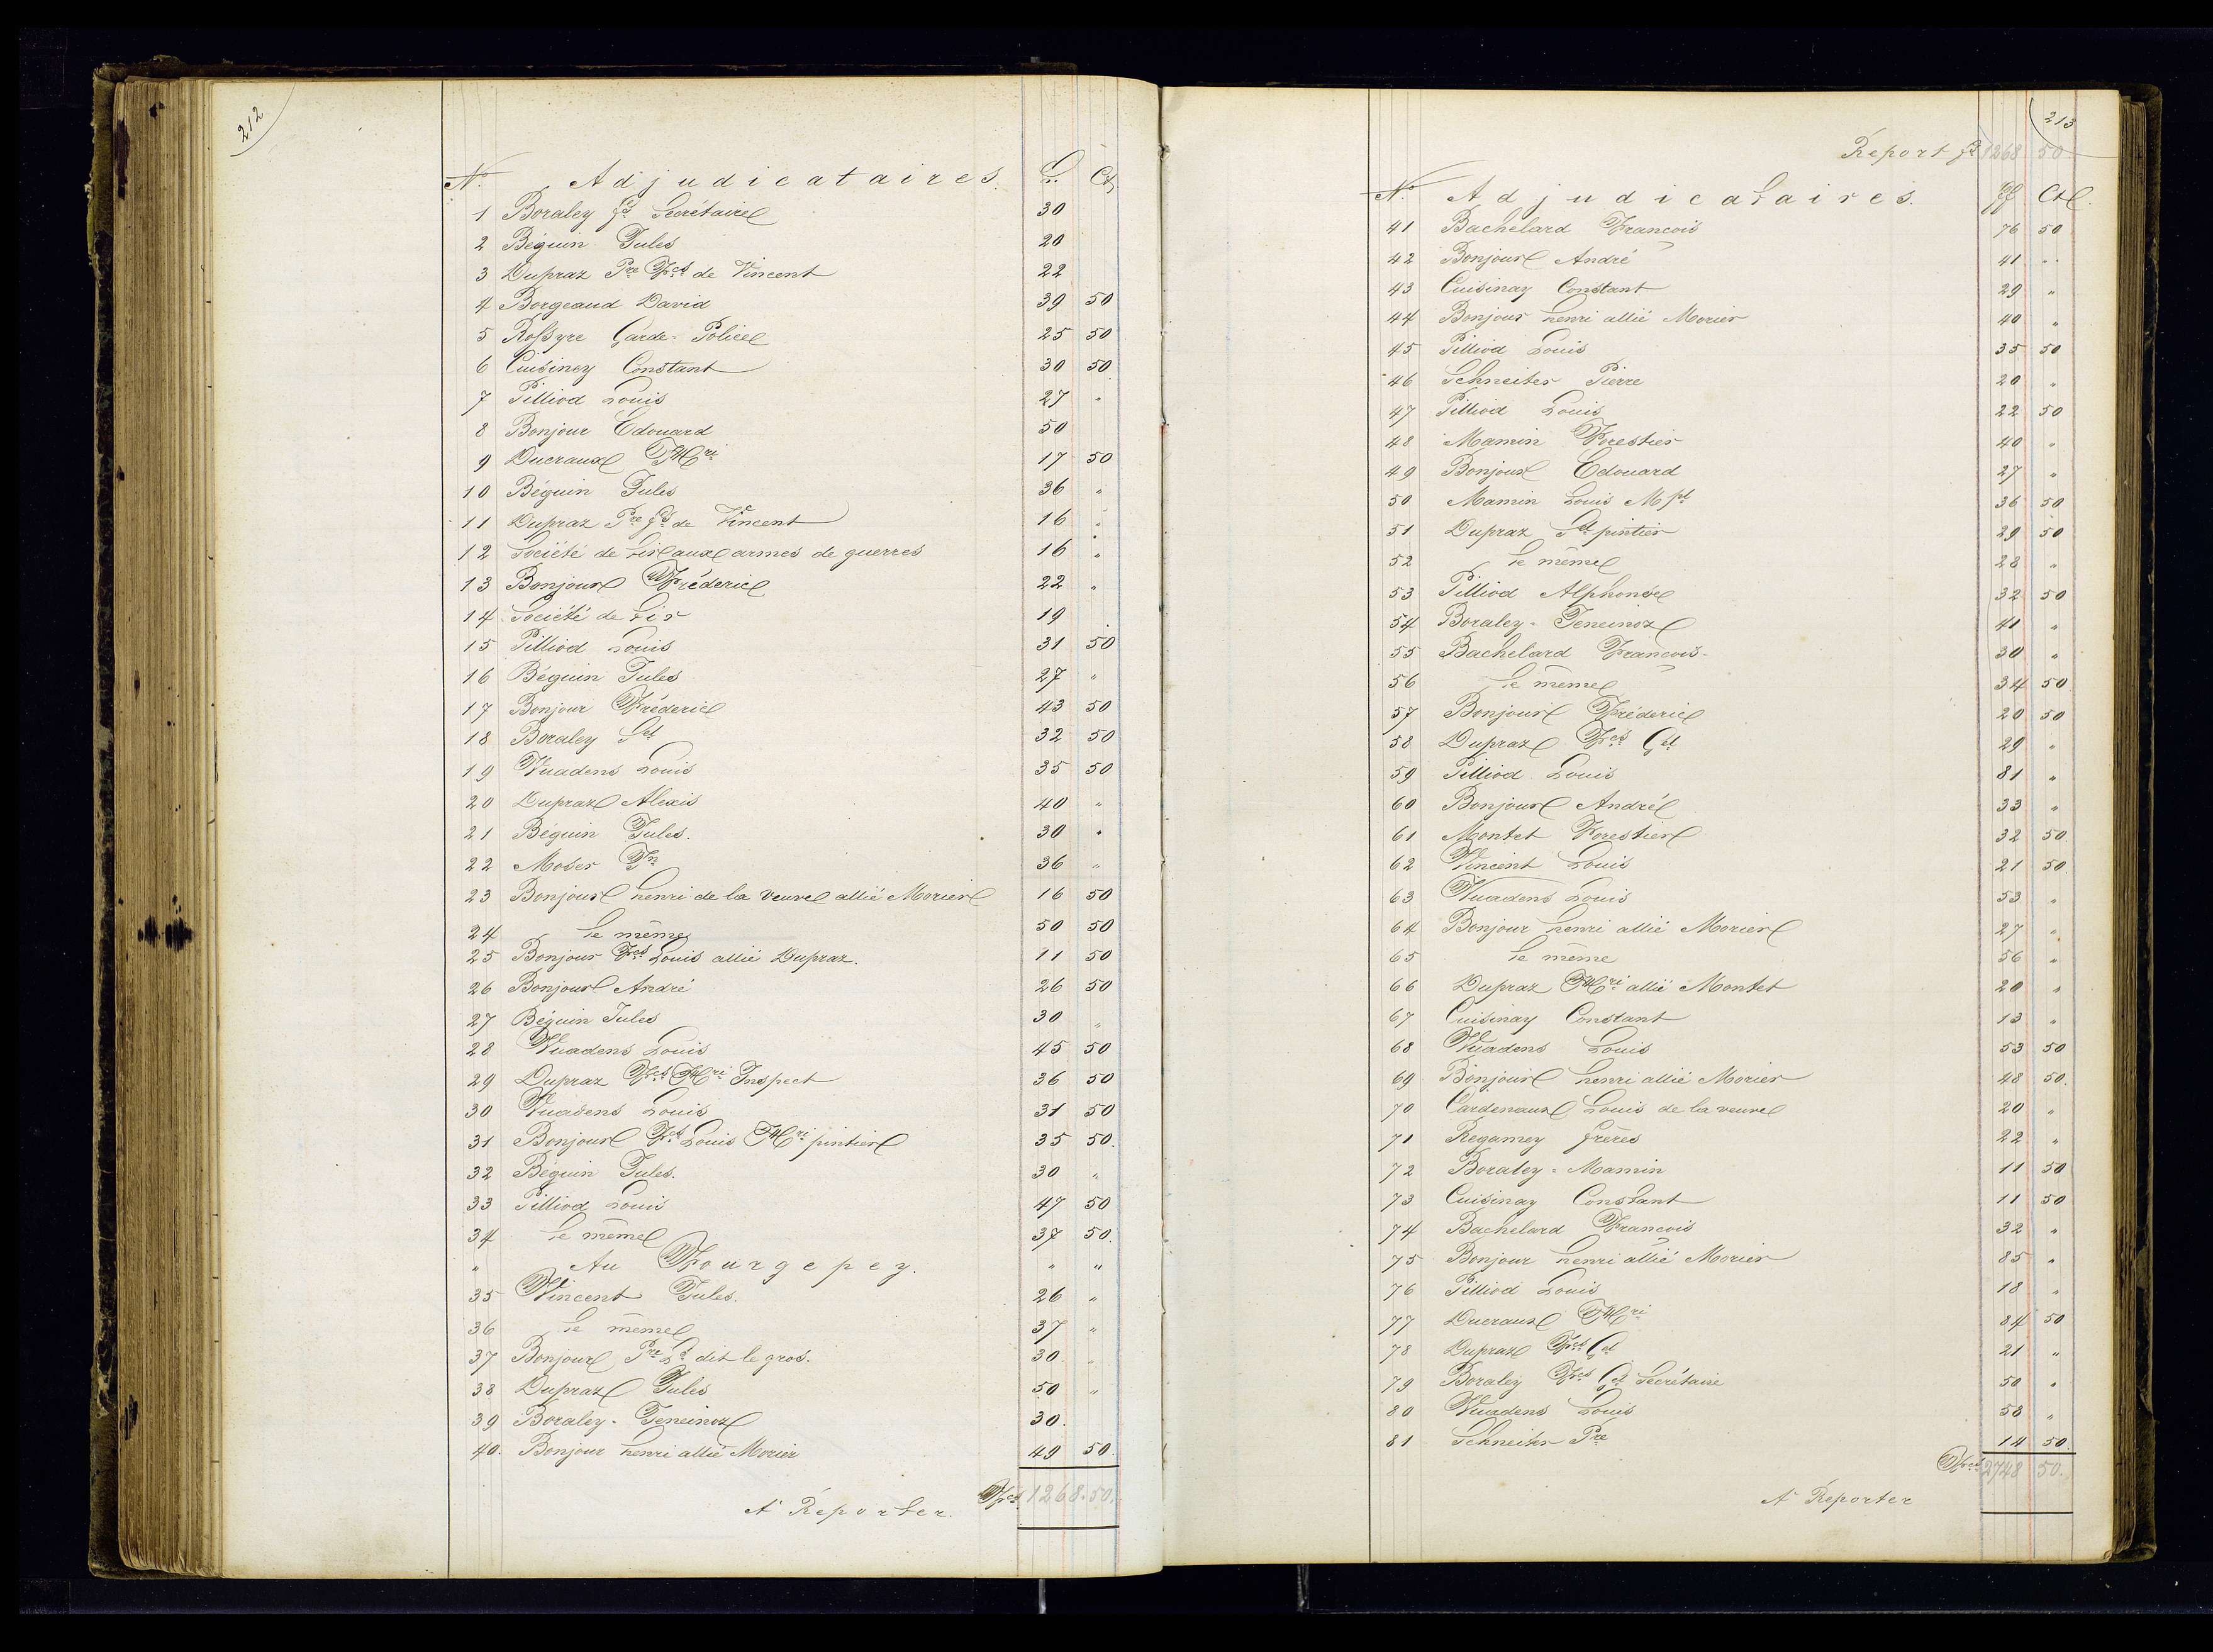 212
N.° Adjudicataires. fr. Cts
1 Boraley fs Secrétaire 30
2 Béguin Jules 20
3 Dupraz Pre Fçs de Vincent 22
4 Borgeaud David 39 50
5 Rossyre Garde-Police 25 50
6 Cuisiney Constant 30 50
7 Pilliod Louis 27 "
8 Bonjour Edouard 50
9 Ducraux J Hri 17 50
10 Béguin Jules 36 "
11 Dupraz Pre fs de Vincent 16 "
12 Société de tir aux armes de guerres 16 "
13 Bonjour Fréderic 22 "
14 Société de tir 19
15 Pilliod Louis 31 50
16 Béguin Jules 27 "
17 Bonjour Fréderic 43 50
18 Boraley Sel 32 50
19 Vuadens Louis 35 50
20 Dupraz Alexis 40 "
21 Béguin Jules. 30 "
22 Moser Jn 36 "
23 Bonjour henri de la veuve allié Morier 16 50
24 le même 50 50
25 Bonjour Fçs Louis allié Dupraz. 11 50
26 Bonjour André 26 50
27 Béguin Jules 30 "
28 Vuadens Louis 45 50
29 Dupraz Fçs Hri Inspect 36 50
30 Vuadens Louis 31 50
31 Bonjour Fçs Louis J Hri pintier 35 50.
32 Béguin Jules. 30 "
33 Pilliod Louis 47 50
34 le même 37 50.
" Au Fourgepey. " "
35 Vincent Jules. 26 "
36 le même 37 "
37 Bonjour, Pre Ls dit le gros. 30 "
38 Dupraz Jules 50 "
39 Boraley-Jeneinoz 30.
40. Bonjour henri allié Morier 49 50.
A Reporter. Frcs 1268.50.
213
Report fr 1268 50
N° Adjudicataires. ff Cts.
41 Bachelard François 76 50
42 Bonjour André 41 "
43 Cuisinay Constant 29 "
44 Bonjour henri allié Morier 40 "
45 Pilliod Louis 35 50
46 Schneiter Pierre 20 "
47 Pilliod Louis 22 50
48 Mamin Forestier 40 "
49 Bonjour Edouard 27 "
50 Mamin Louis Mpl 36 50
51 Dupraz Sel pintier 29 50
52 le même 28 "
53 Pilliod Alphonse 32 50
54 Boraley-Jeneinoz 41 "
55 Bachelard François- 30 "
56 le même 34 50
57 Bonjour Fréderic 20 50
58 Dupraz Fçs Gel 29 "
59 Pilliod Louis 81 "
60 Bonjour André 33 "
61 Montet Forestier 32 50.
62 Vincent Louis 21 50
63 Vuadens Louis 53 "
64 Bonjour henri allié Morier 27 "
65 le même 56 "
66 Dupraz J Hri allié Montet 20 "
67 Cuisinay Constant 13 "
68 Vuadens Louis 53 50
69 Bonjour henri allié Morier 48 50.
70 Cardenaux Louis de la veuve 20 "
71 Regamey frères 22 "
72 Boraley-Mamin 11 50
73 Cuisinay Constant 11 50
74 Bachelard François 32 "
75 Bonjour henri allié Morier 85 "
76 Pilliod Louis 18 "
77 Ducraux J Hri 84 50
78 Dupraz Fçs Gel 21 "
79 Boraley Fçs Gel Secrétaire 50 "
80 Vuadens Louis 58 "
81 Schneiter Pre 14 50
Frcs 2748 50.
A Reporter